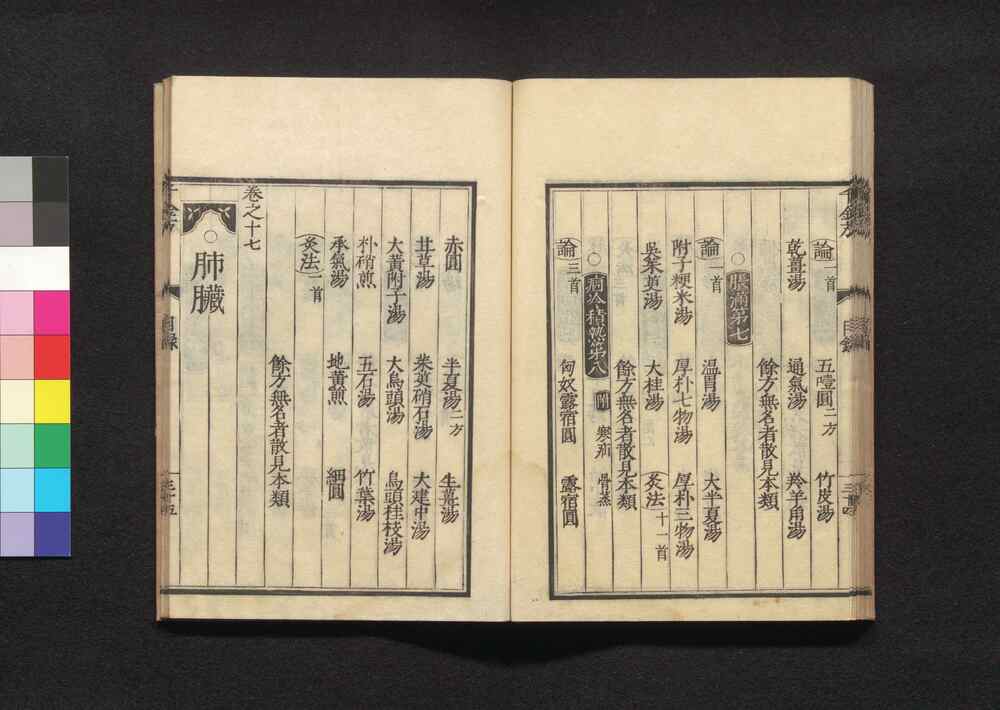 論一首 五噎圓二方 竹皮湯
乾薑湯 通氣湯 羚羊角湯
餘方無名者散見本類
○脹滿第七
論一首 溫胃湯 大半夏湯
附子粳米湯 厚朴七物湯 厚朴三物湯
吳茱萸湯 大桂湯 灸法十一首
餘方無名者散見本類
○痼冷積熱第八 附 寒疝 骨蒸
論三首 匈奴露宿圓 露宿圓
赤圓 半夏湯二方 生薑湯
甘草湯 茱萸硝石湯 大建中湯
大黃附子湯 大烏頭湯 烏頭桂枝湯
朴硝煎 五石湯 竹葉湯
承氣湯 地黃煎 細圓
灸法一首
餘方無名者散見本類
卷之十七
○肺臟